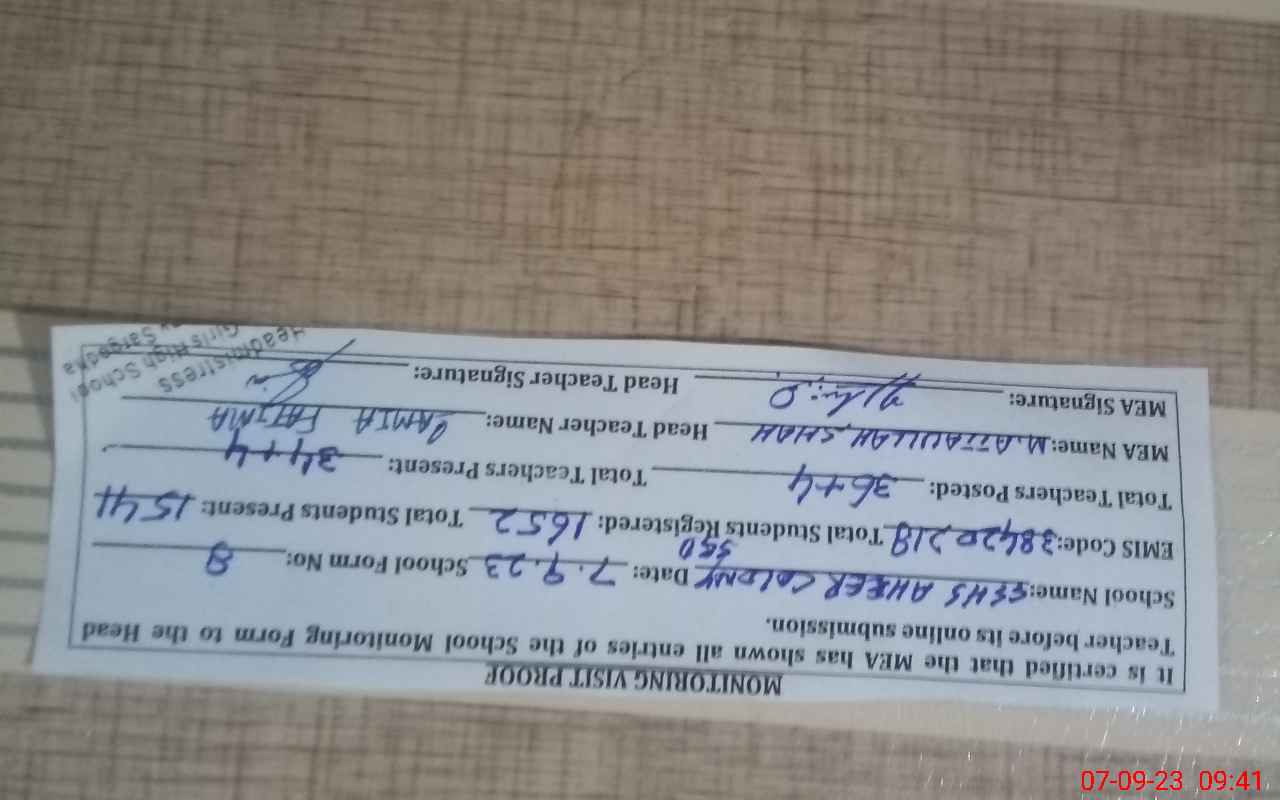 MONITORING VISIT PROOF
It is certified that the MEA has shown all entries of the School Monitoring Form to the Head
Teacher before its online submission.
School Name: GGHS AHEER COLONY SGD Date: 7.9.23 School Form No: 8
EMIS Code: 38420218 Total Students Registered: 1652 Total Students Present: 1541
Total Teachers Posted: 36+4 Total Teachers Present: 34+4
MEA Name: M. ATTAULLAH SHAH Head Teacher Name: SAMIA FATIMA
MEA Signature: Head Teacher Signature:
Headmistress
Girls High School
Sargodha
07-09-23 09:41